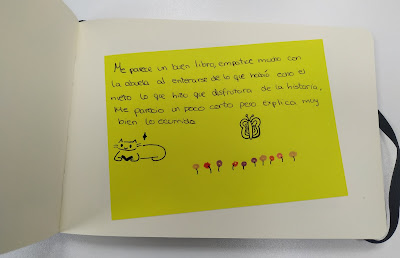 Me parece un buen libro, empaticé mucho con
la abuela al enterarse de lo que había echo el
nieto lo que hizo que disfrutara de la historia,
Me pareció un poco corto pero explica muy
bien lo ocurrido